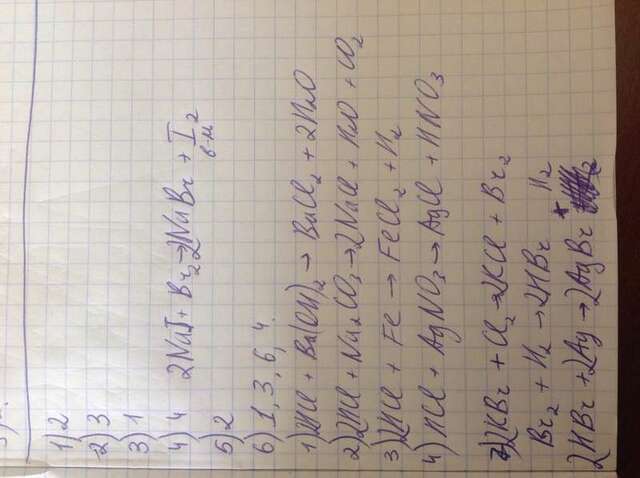 1) 2
2) 3
3) 1
4) 4 2NaI + Br2 → 2NaBr + I2
в-ль
5) 2
6) 1, 3, 6, 4.
1) 2HCl + Ba(OH)2 → BaCl2 + 2H2O
2) 2HCl + Na2CO3 → 2NaCl + H2O + CO2
3) 2HCl + Fe → FeCl2 + H2
4) HCl + AgNO3 → AgCl + HNO3
7) 2KBr + Cl2 → 2KCl + Br2
Br2 + H2 → 2HBr
2HBr + 2Ag → 2AgBr + H2